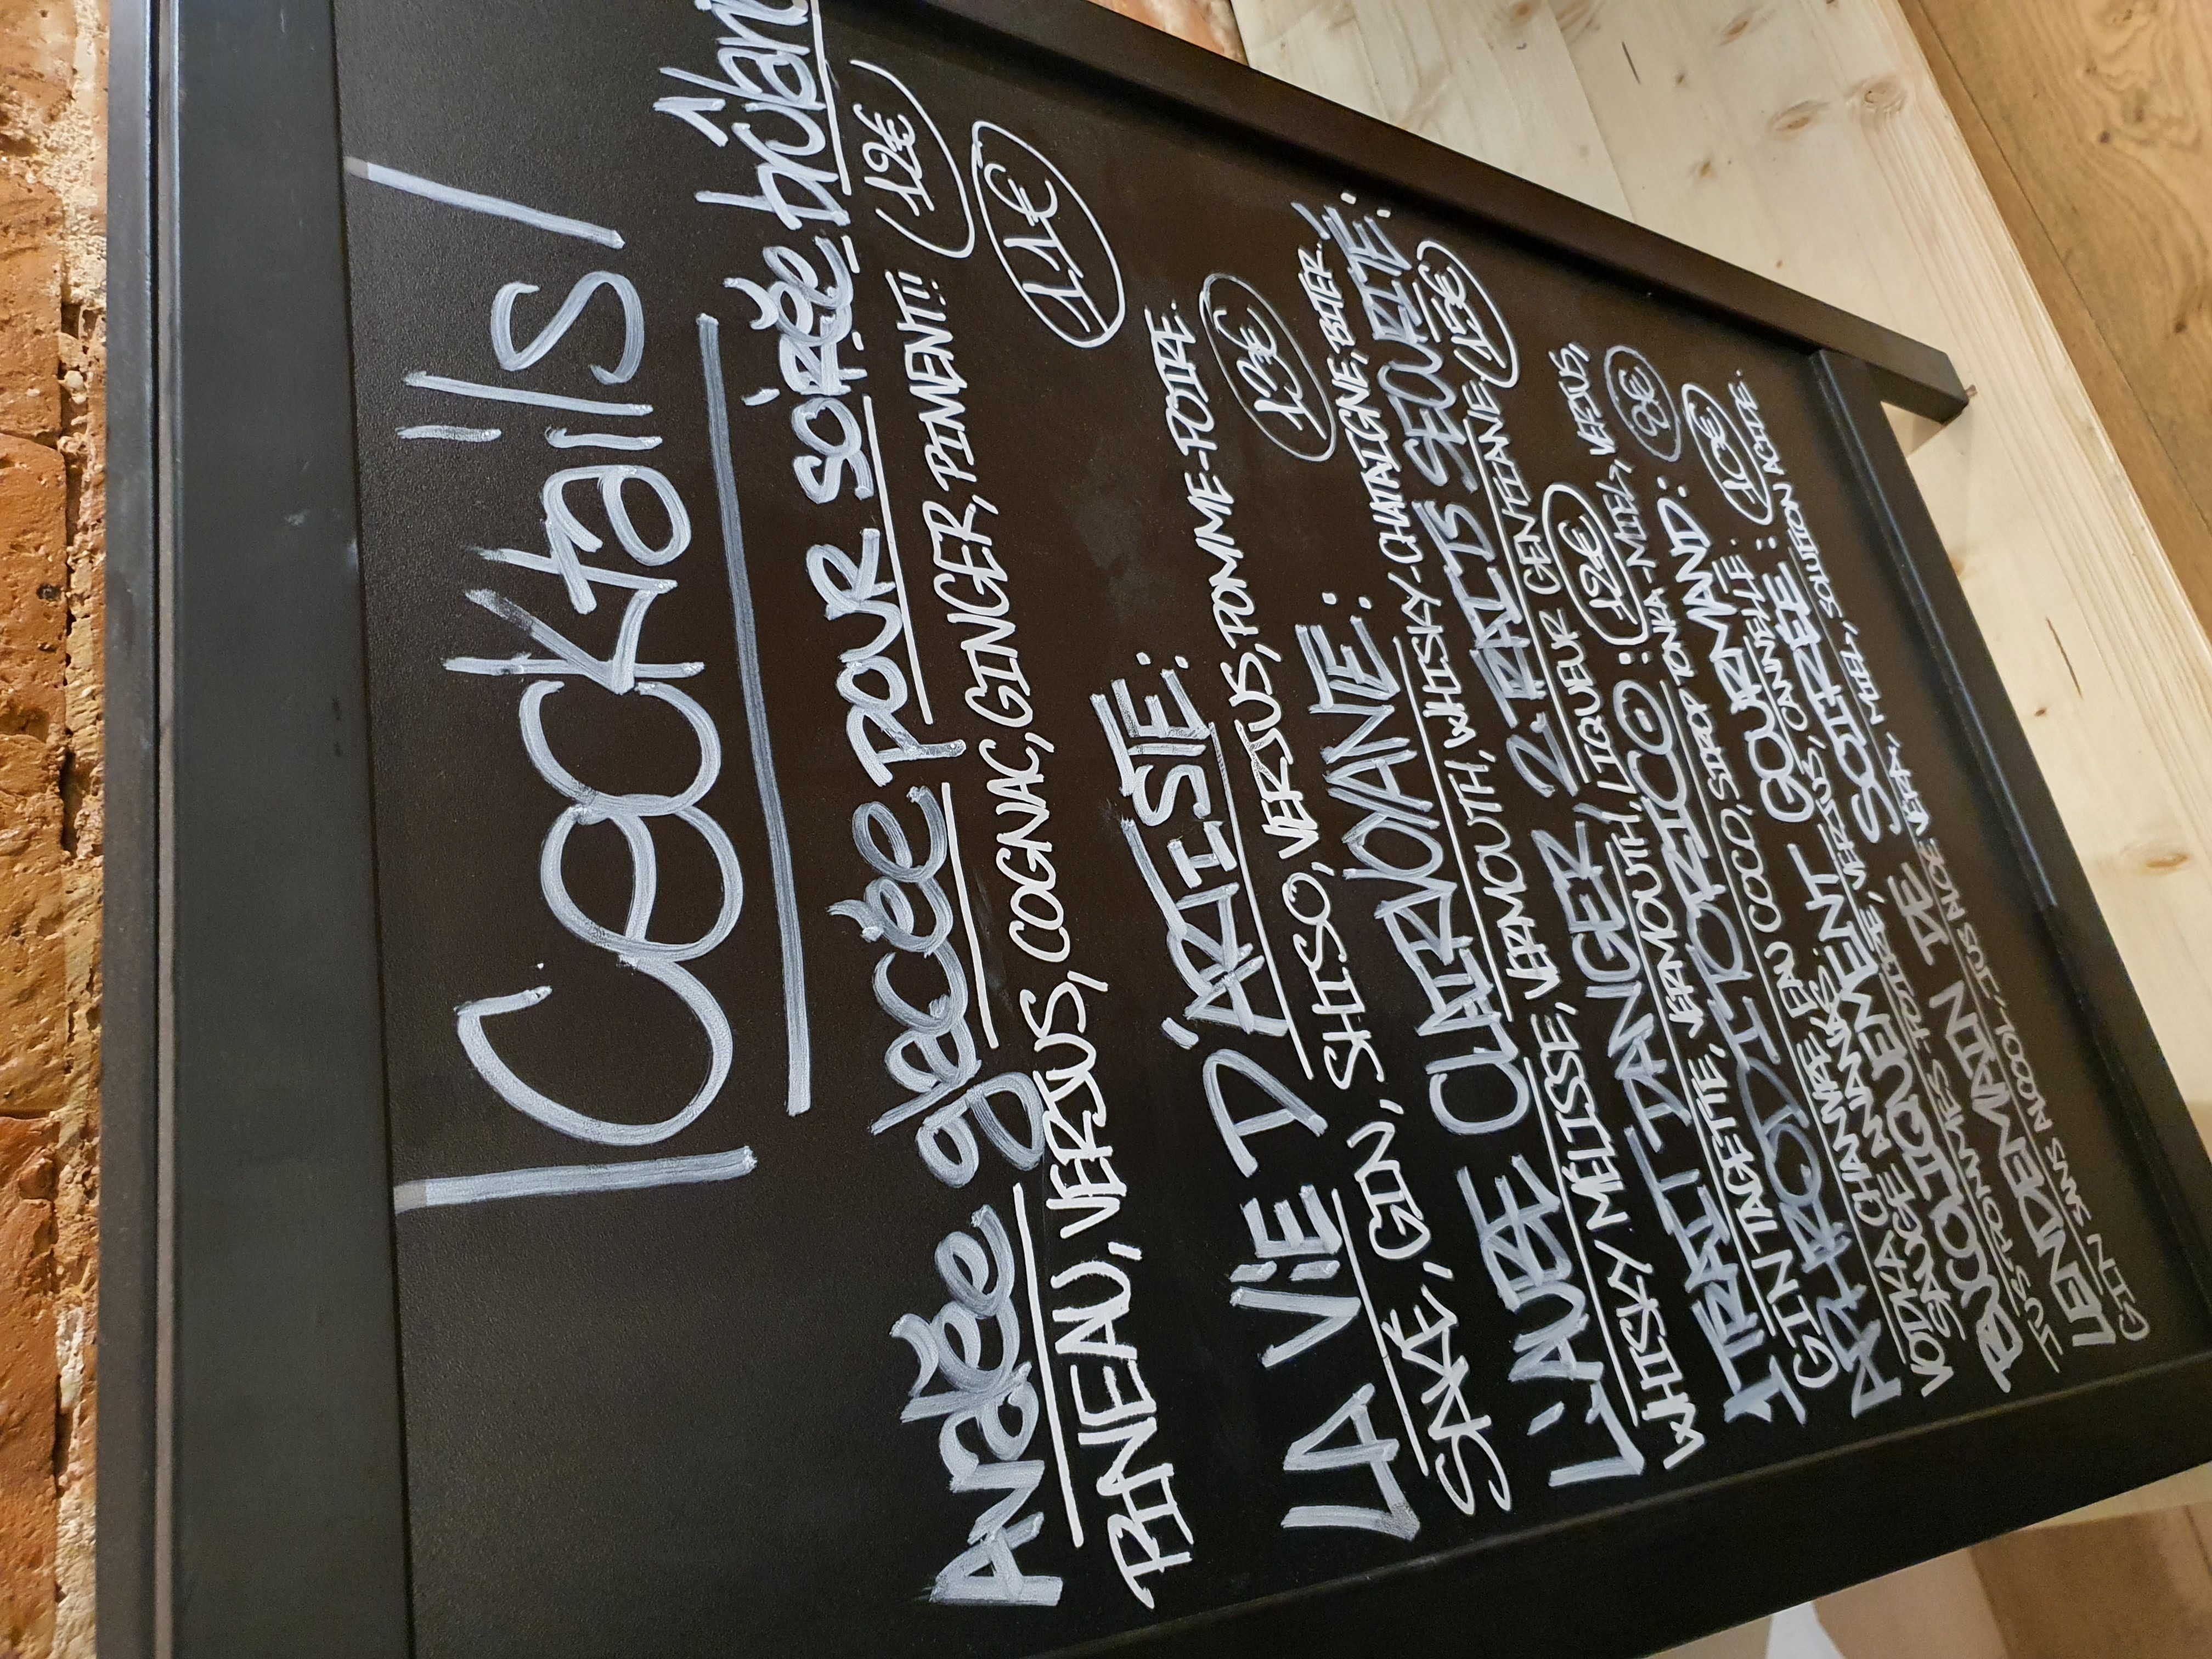 Cocktails
Avalée glacée pour soirée brûlante
PINEAU, VERJUS, COGNAC, GINGER, PIMENT!! 12€
LA ViE D'ARTiSTE: 11€
SAKÉ, GIN, SHISO, VERJUS, POMME-POIRE.
L'AUBE CLAIRVOYANTE: 13€
WHISKY MÉLISSE, VERMOUTH, WHISKY-CHATAIGNE, BITER.
1 TRAIT DANGER, 2 TRAITS SÉCURITÉ:
GIN TAGETTE, VERMOUTH, LIQUEUR GENTIANE. 15€
APHRODITORICO: 12€
VODKA CHANVRE, EAU COCO, SIROP TONKA-MIEL, VERJUS,
SAUGE ANANAS.
BUCOLIQUEMENT GOURMAND: 8€
JUS POMMES-POIRE, VERJUS, CANNELLE.
LENDEMAIN DE SOIRÉE: 10€
GIN SANS ALCOOL, JUS ALOE VÉRA, MIEL, SOLUTION ACIDE.